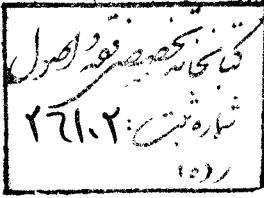 کتابخانه تخصصی فقه و اصول
شماره ثبت: ۲۶۱۰۲